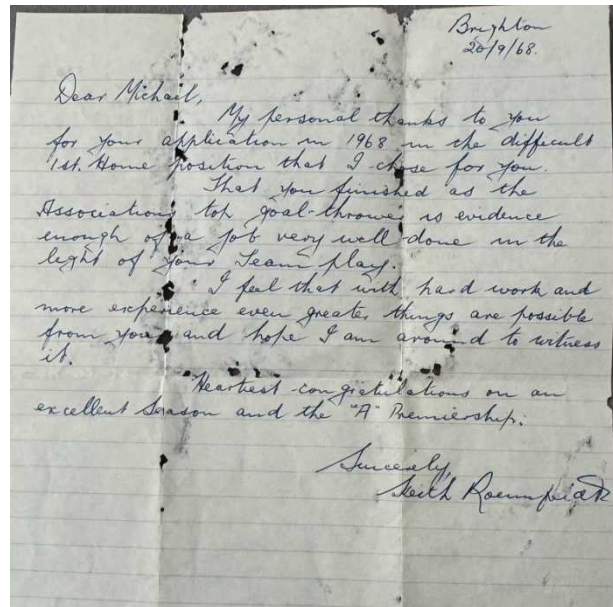 Brighton
20/9/68.
Dear Michael,
My personal thanks to you
for your application in 1968 in the difficult
1st. Home position that I chose for you.
That you finished as the
Associations top goal-thrower is evidence
enough of a job very well done in the
light of your Team play.
I feel that with hard work and
more experience even greater things are possible
from you and hope I am around to witness
it.
Heartiest congratulations on an
excellent Season and the "A" Premiership.
Sincerely,
Keith